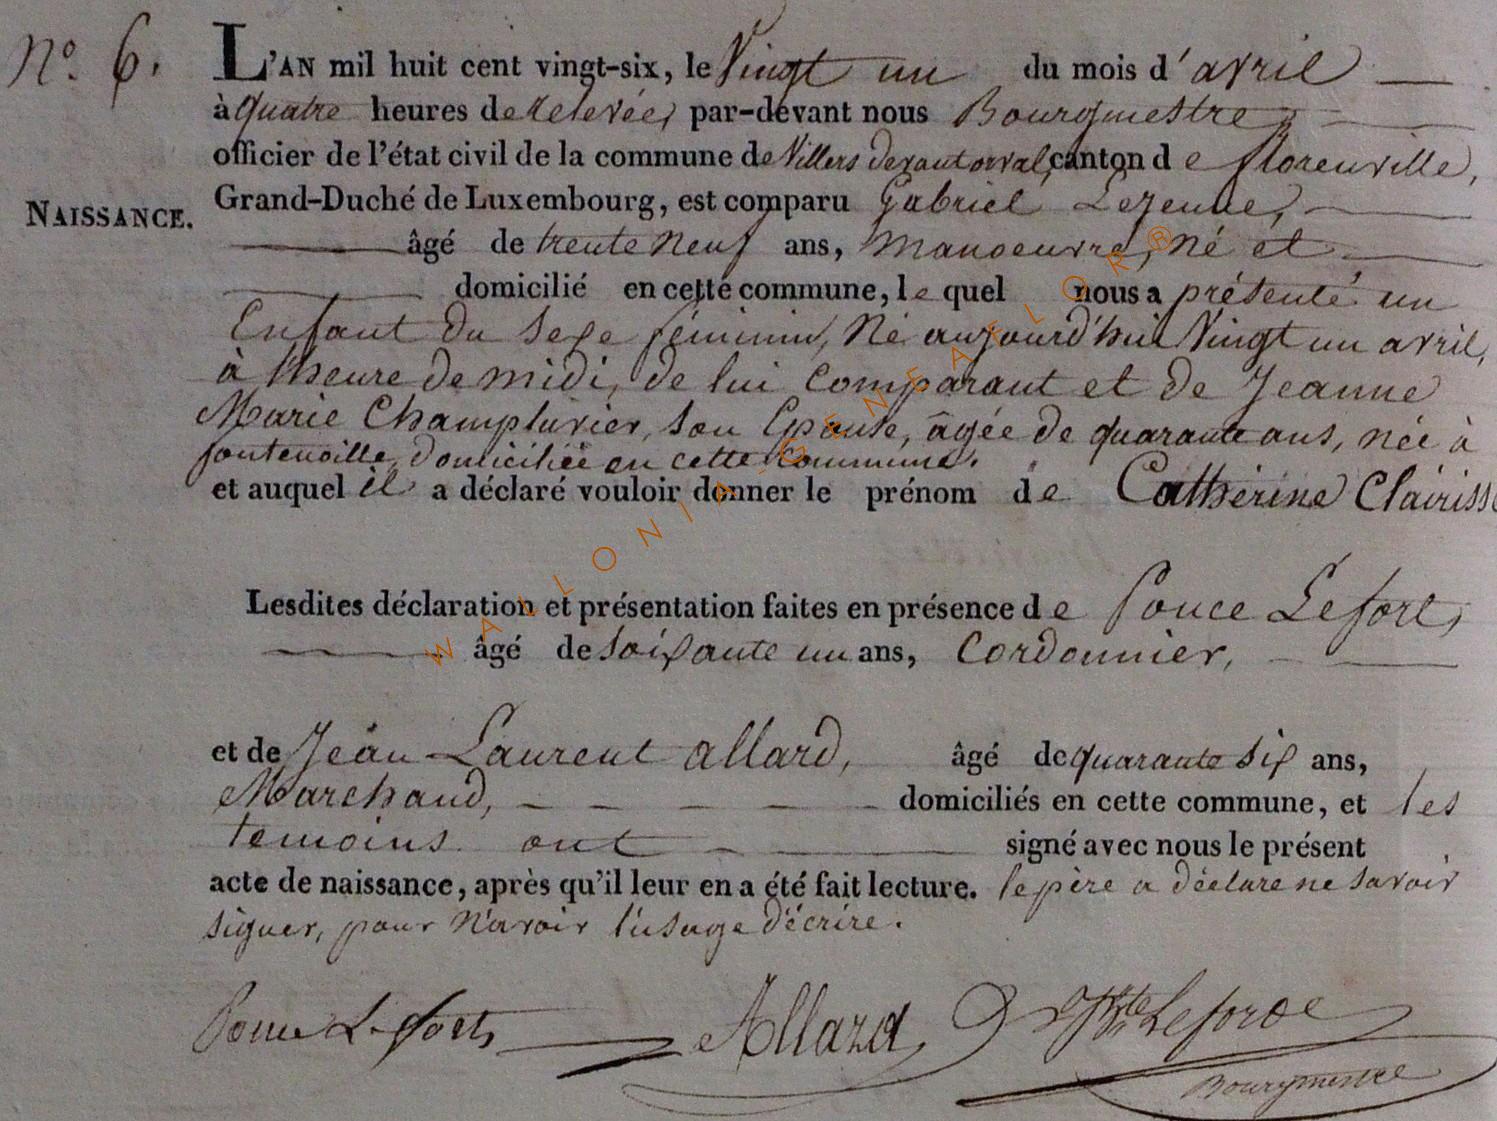 N.° 6.
L'AN mil huit cent vingt-six, le Vingt un du mois d'avril
à quatre heures de relevée, par-devant nous Bourgmestre,
officier de l'état civil de la commune de Villers devant orval, canton de florenville,
NAISSANCE.
Grand-Duché de Luxembourg, est comparu Gabriel Lejeune,
âgé de trente neuf ans, manoeuvre, né et
domicilié en cette commune, le quel nous a présenté un
Enfant du sexe féminin, né aujourd'hui Vingt un avril,
à l'heure de midi, de lui comparant et de Jeanne
Marie Champluvier, son Epouse, âgée de quarante ans, née à
fontenoille, domiciliée en cette commune.
et auquel il a déclaré vouloir donner le prénom de Cathérine Clairisse
Lesdites déclaration et présentation faites en présence de Ponce Lefort,
âgé de soixante un ans, Cordonnier,
et de Jean Laurent allard, âgé de quarante six ans,
Marchand, domiciliés en cette commune, et les
temoins ont signé avec nous le présent
acte de naissance, après qu'il leur en a été fait lecture. le père a déclaré ne savoir
signer, pour n'avoir l'usage d'écrire.
Ponce Lefort Allard Lefort
Bourgmestre
WALLONIA-GENEAFLOR®